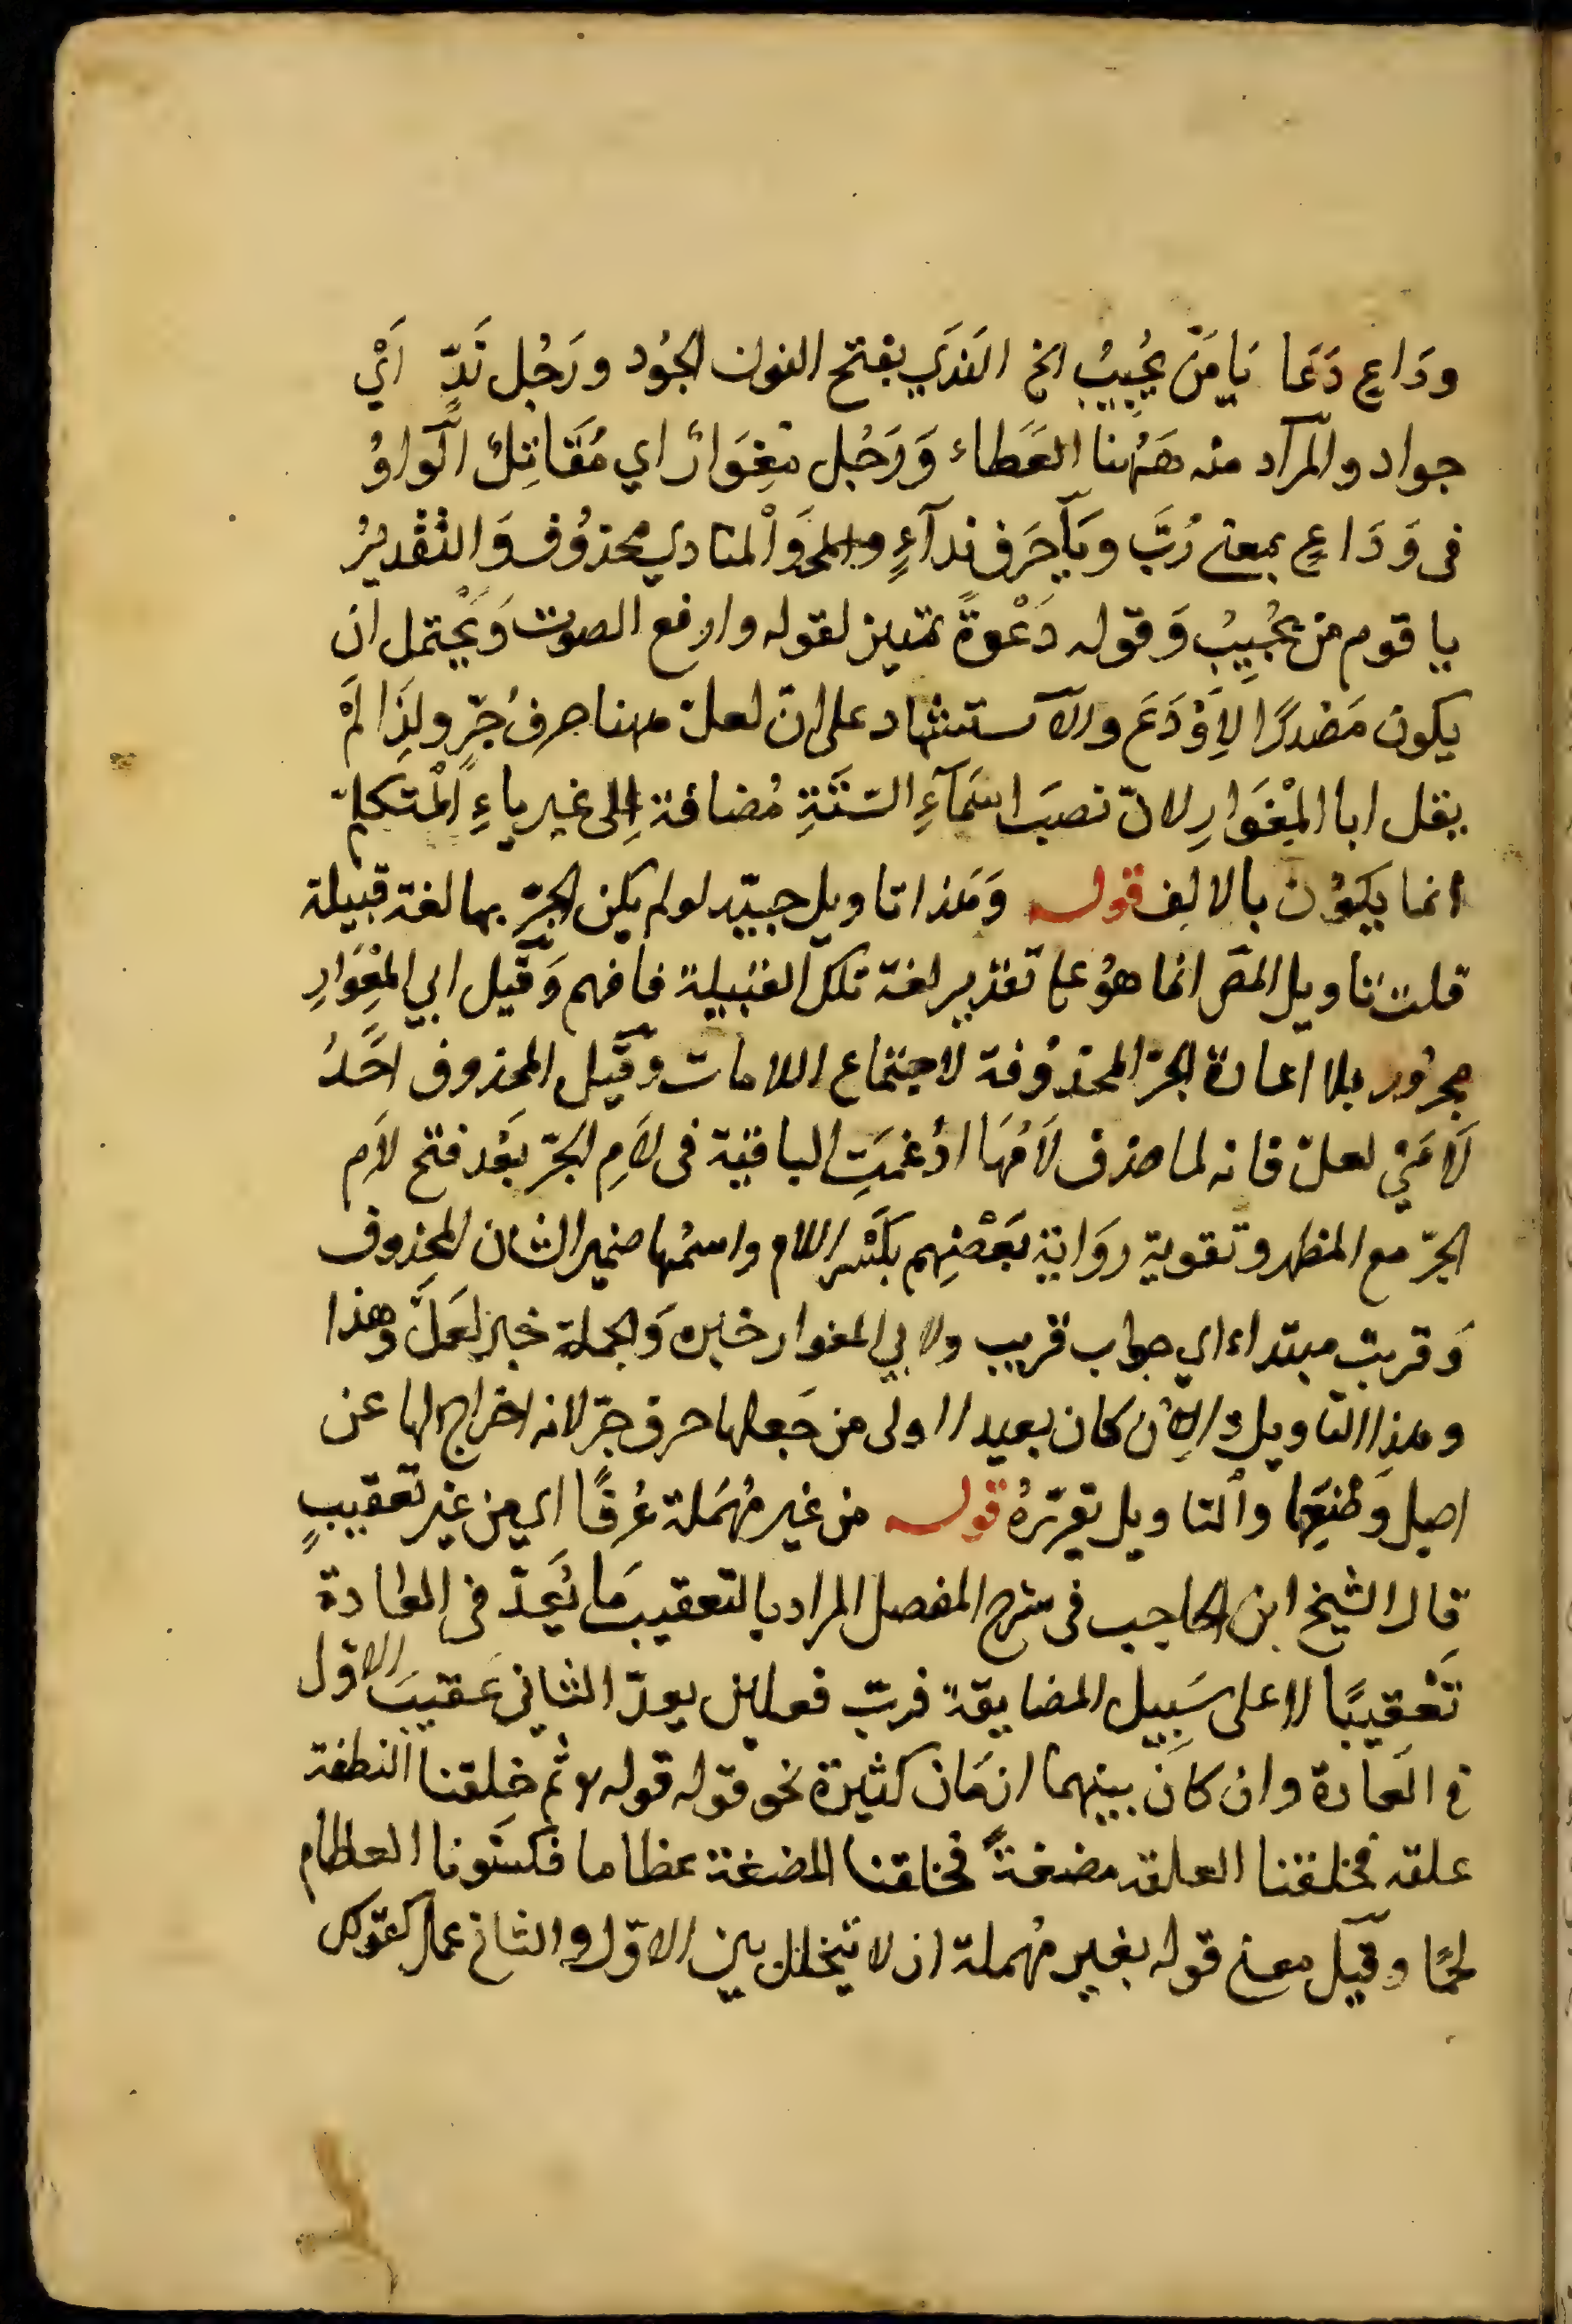 ودَاعٍ دَعَا يَا مَنْ يُجِيبُ الخ النَدَي بفتح النون الجُود ورَجُل نَدٍّ اَيْ
جواد والمرآد منه هَهُنا العَطاء وَرَجُل مِغوَارٌ اي مُقَاتِلٌ الوَاوُ
فى وَدَاعٍ بمعنى رُبَّ ويَا حَرف ندآءٍ وَالمنادي محذوُف وَالتّقْديرُ
يا قوم من يُجِيبُ وَقوله دَعْوةً تمييز لقوله وارفع الصوت وَيَحْتمل ان
يكون مَصْدرًا لِاَوْدَعَ والآستشهاد على انّ لعلّ ههنا حرفُ جَرٍّ ولِذَا لَمْ
يقل ابا المِغْوَارِ لانّ نصبَ اسْمَآءِ السّتَّةِ مُضافة اِلى غير ياءِ المْتكلمّ
انما يكوُن بالالِف قوله وَهَذا تاويل جيّد لو لم يكن الجرّ بها لغة قبيلة
قلت تاويل المصّ انما هوُ على تقدير لغة تلك القبيلة فافهم وَقيل ابي المِغْوَارِ
مجرُور بلا اعادة الجرّ المحذوُفة لاجتماع اللامات وَقيل المحذوف احَدُ
لَامَيْ لعلّ فانه لما حذف لَامُهَا ادُغمَتِ الباقية فى لَامِ الجَرّ بَعْد فتح لاَم
الجرّ مع المظهر وتقوية روَاية بَعْضِهِم بكَسْر اللام واسمُها ضمير الشان المحِذوف
وَقريب مبتداء اي جواب قريب ولابي المغوار خبره وَالجملة خبر لعَلَّ وَهذا
وهذا التاويل وان كان بعيدا اولى من جَعلها حرف جرّ لانه اخراج لها عن
اصل وَضْعِها والتاويل يقرّرهُ قوله من غير مُهْمَلة عُرفًا اي من غير تعقيبٍ
قال الشيخ ابن الحاجب فى شرح المفصل المراد بالتعقيب مَا يُعَدّ فى العادة
تَعْقيبًا لا على سَبِيل المضايقة فربّ فعلين يعدّ الثاني عَقيبَ الاوّل
فى العَادة وان كان بينهما ازمَان كثيرة نحو قوله قوله ثم خلقنا النطفة
علقه فخلقنا العلقه مضغةً فخلقنا المضغة عظاما فكسَونا العظام
لحمًا وقيل معنى قوله بغير مُهملة ان لا يتخلل بين الاوّل والثاني عمل كقولك